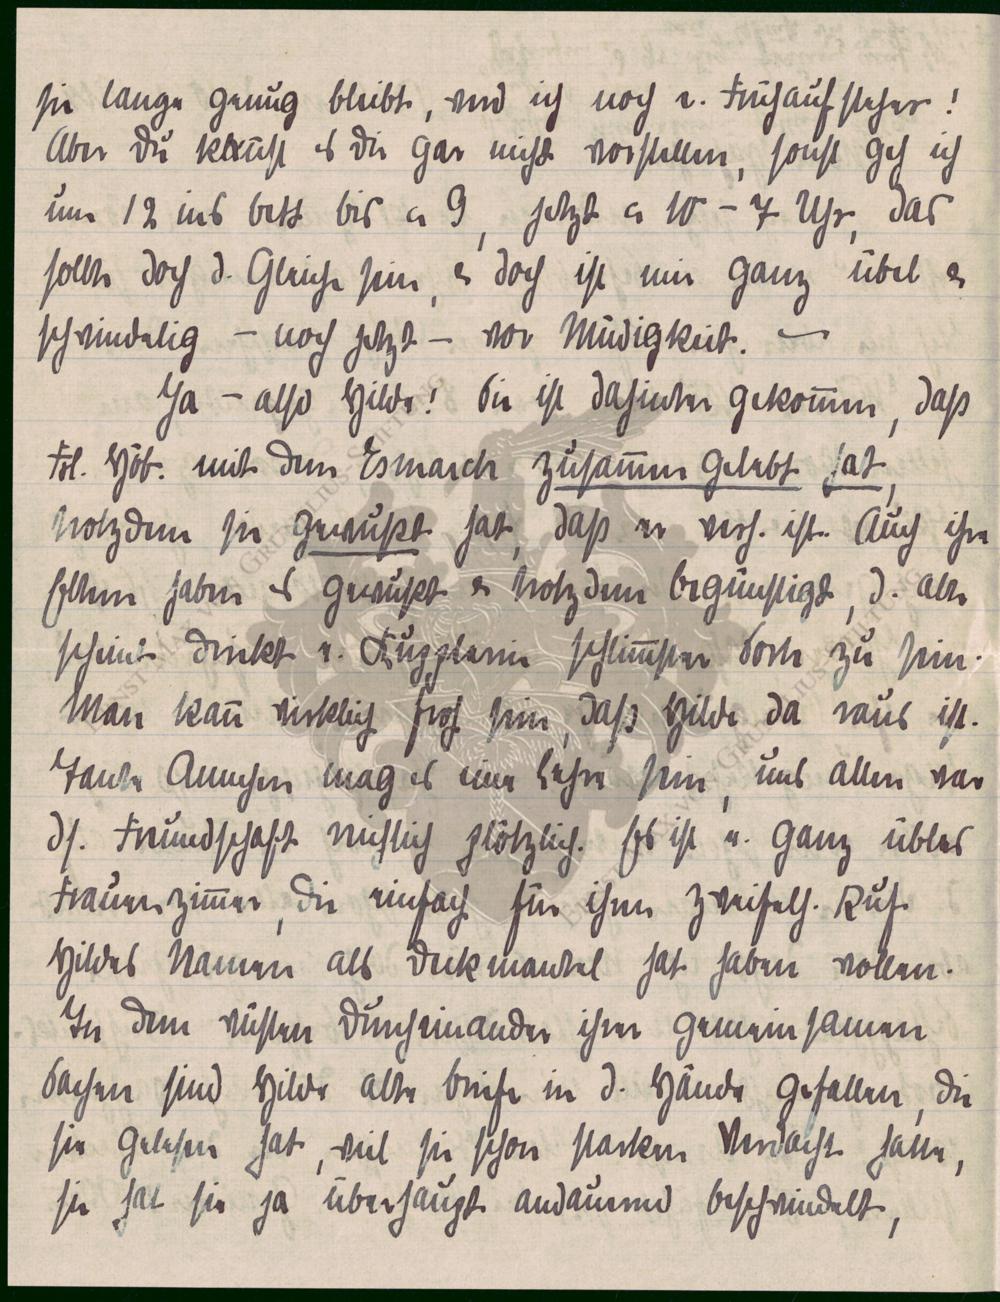 sie lange genug bleibt, werd ich noch e. Frühaufsteher!
Aber du kannst es dir gar nicht vorstellen, sonst geh ich
um 12 ins bett bis a 9, jetzt a 10 – 7 Uhr, das
sollte doch d. Gleiche sein, & doch ist mir ganz übel &
schwindelig – noch jetzt – vor Müdigkeit. –
Ja – also Hilde! Sie ist dahinter gekom̅en, daß
Frl. Höb. mit dem Esmarch zusam̅en gelebt hat,
trotzdem sie gewußt hat, daß er verh. ist. Auch ihre
Eltern haben es gewußt & trotzdem begünstigt, d. alte
scheint direkt e. Kupplerin schlim̅ster Sorte zu sein.
Man kan̅ wirklich froh sein, daß Hilde da raus ist.
Tante Annchen mag es eine Lehre sein, uns allen war
ds. Freundschaft reichlich plötzlich. Es ist e. ganz übles
Frauenzim̅er, die einfach für ihren zweifelh. Ruf
Hildes Namen als Deckmantel hat haben wollen.
In dem wüsten Durcheinander ihrer gemeinsamen
Sachen sind Hilde alte briefe in d. Hände gefallen, die
sie gelesen hat, weil sie schon starken Verdacht hatte,
sie hat sie ja überhaupt andauernd beschwindelt,
ERNST MAX VON GRUNELIUS-STIFTUNG